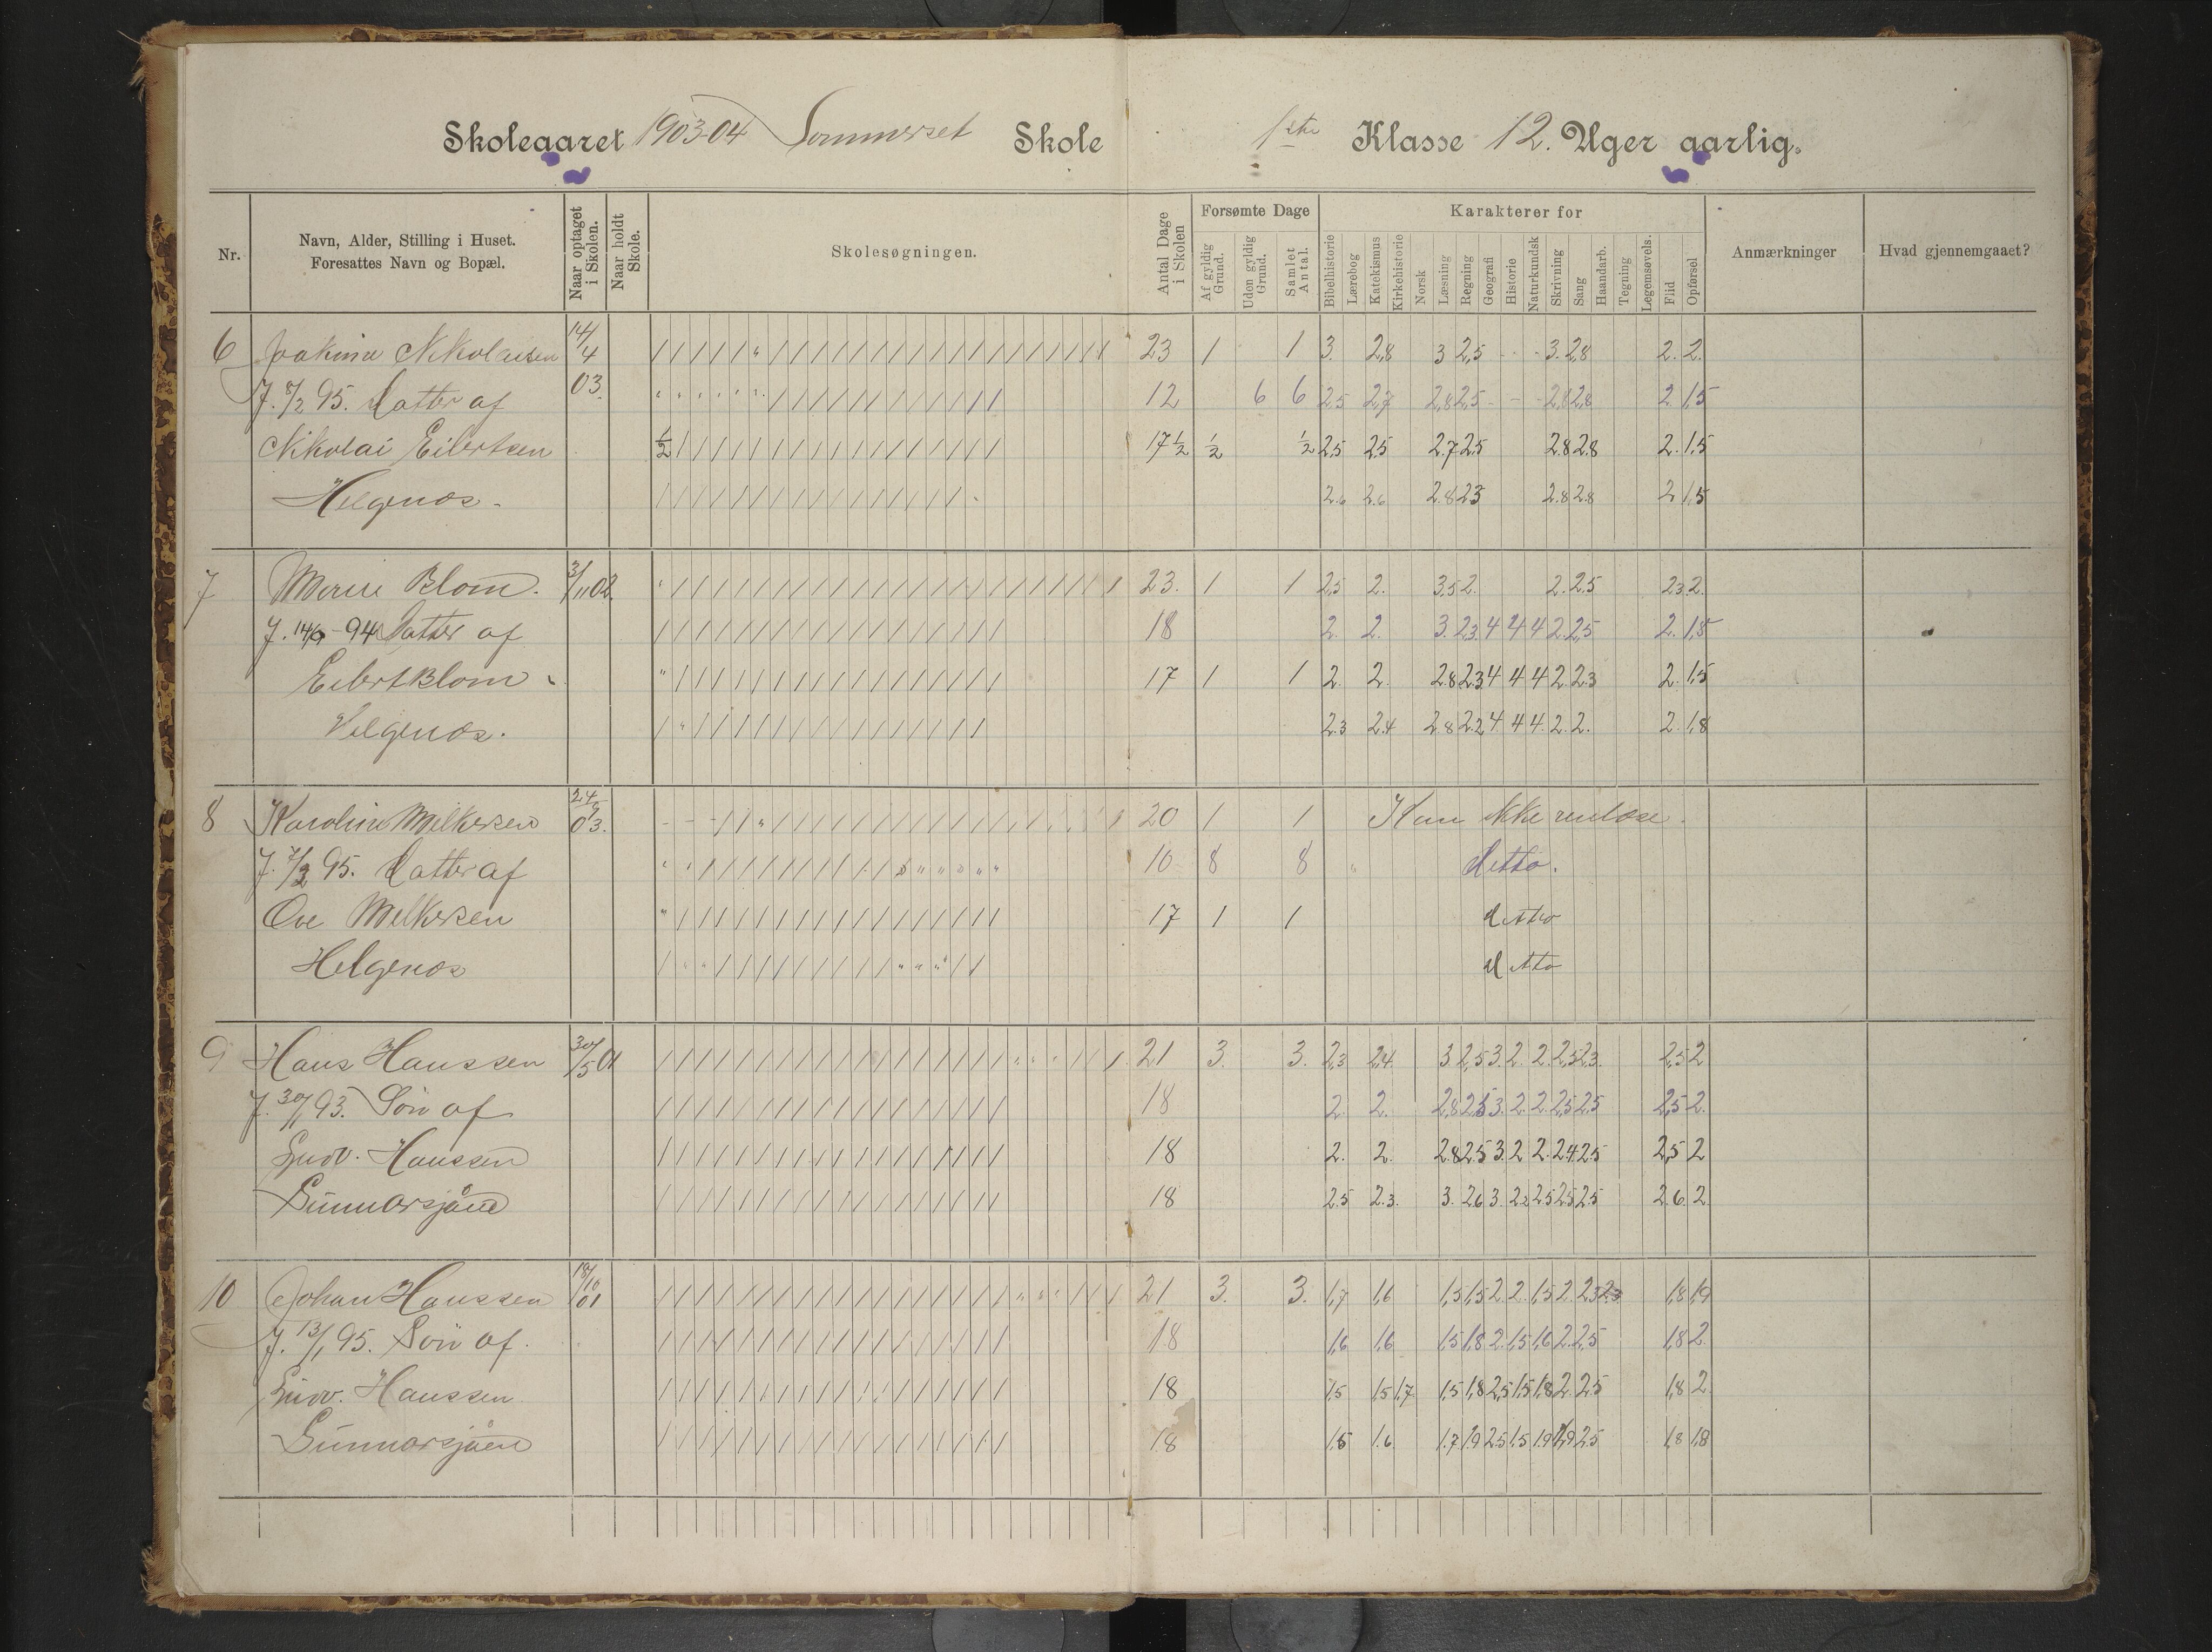 Skoleaaret 1903-04 Sommerset Skole 1ste Klasse 12. Uger aarlig.
Nr. Navn, Alder, Stilling i Huset. Foresattes Navn og Bopæl. Naar optaget i Skolen. Naar holdt Skole. Skolesøgningen. Antal Dage i Skolen Forsømte Dage Af gyldig Grund. Uden gyldig Grund. Samlet Antal. Karakterer for Bibelhistorie Lærebog Katekismus Kirkehistorie Norsk Læsning Regning Geografi Historie Naturkundsk Skrivning Sang Haandarb. Tegning Legemsøvels. Flid Opførsel Anmærkninger Hvad gjennemgaaet?
6 Joakima Nikolaisen 14/4 23 1 1 3. 2,8 3 2,5 3. 2,8 2. 2.
F. 8/2 95. Datter af 03. 12 6 6 2,5 2,7 2,8 2,5 2,8 2,8 2 1,5
Nikolai Eibertsen 17 1/2 1/2 1/2 2,5 2,5 2.7 2.5 2.8 2.8 2. 1.5
Helgenæs. 2.6 2.6 2.8 2.3 2.8 2.8 2 1,5
7 Marie Blom. 3/11 02. 23. 1 1 2,5 2. 3,5 2. 2. 2.5 2.3 2.
F. 14/9 - 94 Datter af 18 2. 2. 3. 2.3. 4 4 4 2. 2,5 2. 1,8
Eibert Blom 17 1 1 2. 2. 2.8 2.3 4 4 4 2 2.3 2. 1.5
Helgenæs. 2.3 2.4 2.8 2.2 4 4 4. 2. 2. 2. 1,8
8 Karoline Melkersen 24/9 03. 20 1 1 Kan ikke renlæse.
F. 7/2 95. Datter af 10 8 8 " Ditto.
Ove Melkersen 17 1 1 ditto
Helgenæs ditto
9 Hans Hanssen 30/5 01 21 3. 3. 2,3 2,4. 3 2,5 3. 2. 2. 2,5 2,3. 2,5 2
F. 30/1 93. Søn af 18 2. 2. 2,8 2,5 3. 2. 2. 2,5 2,5 2,5 2.
Ludv. Hanssen 18 2. 2. 2.8 2.5 3. 2 2. 2.4 2.5 2,5 2
Sunnarsjåen 18 2.5 2.3. 3. 2.6 3. 2.2 2.5 2.5 2.5 2.6. 2
10 Johan Hanssen 18/10 01 21 3. 3. 1,7 1,6 1,5 1,5 2 2. 1,5 2. 2,3 1,8 1,9
F. 13/1 95. Søn af. 18 1,6 1,6 1,5 1,8 2. 1,5 1,6 2. 2,5 1,8 2.
Ludv. Hanssen 18 1.5 1,5 1,7 1,5 1,8 2,5 1,5 1,8 2. 2,5 1,8 2
Sunnarsjåen 18 1.5 1.6 1.7 1.9 2.5 1.5 1.9 1,9 2.5 1,8 1,8